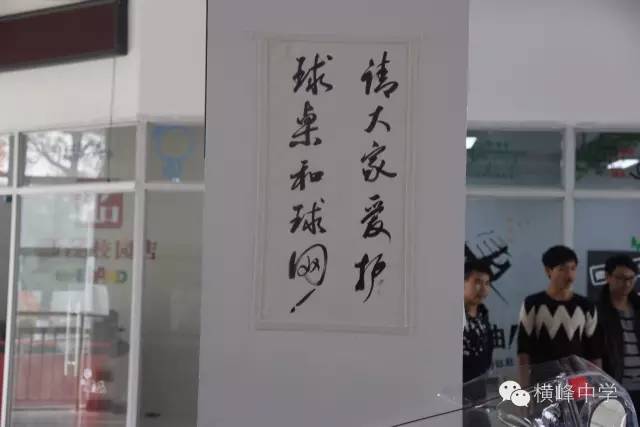 请大家爱护
球桌和球网!
校园店
横峰中学